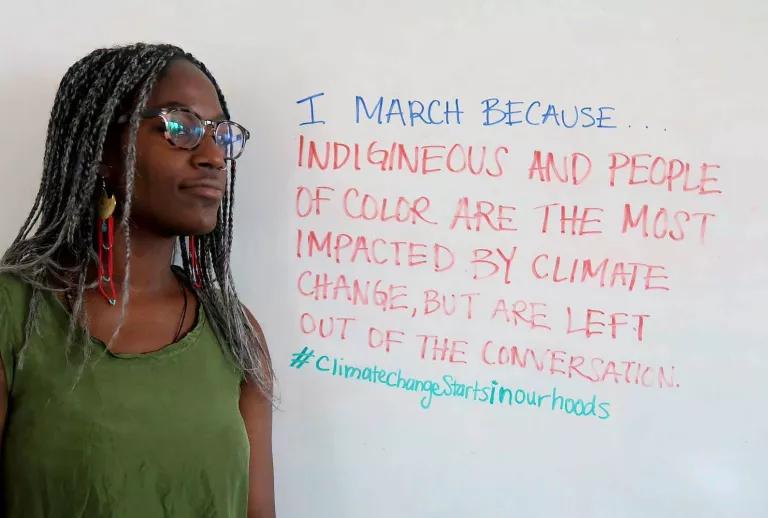 I MARCH BECAUSE....
INDIGINEOUS AND PEOPLE
OF COLOR ARE THE MOST
IMPACTED BY CLIMATE
CHANGE, BUT ARE LEFT
OUT OF THE CONVERSATION.
#ClimatechangeStartsinourhoods